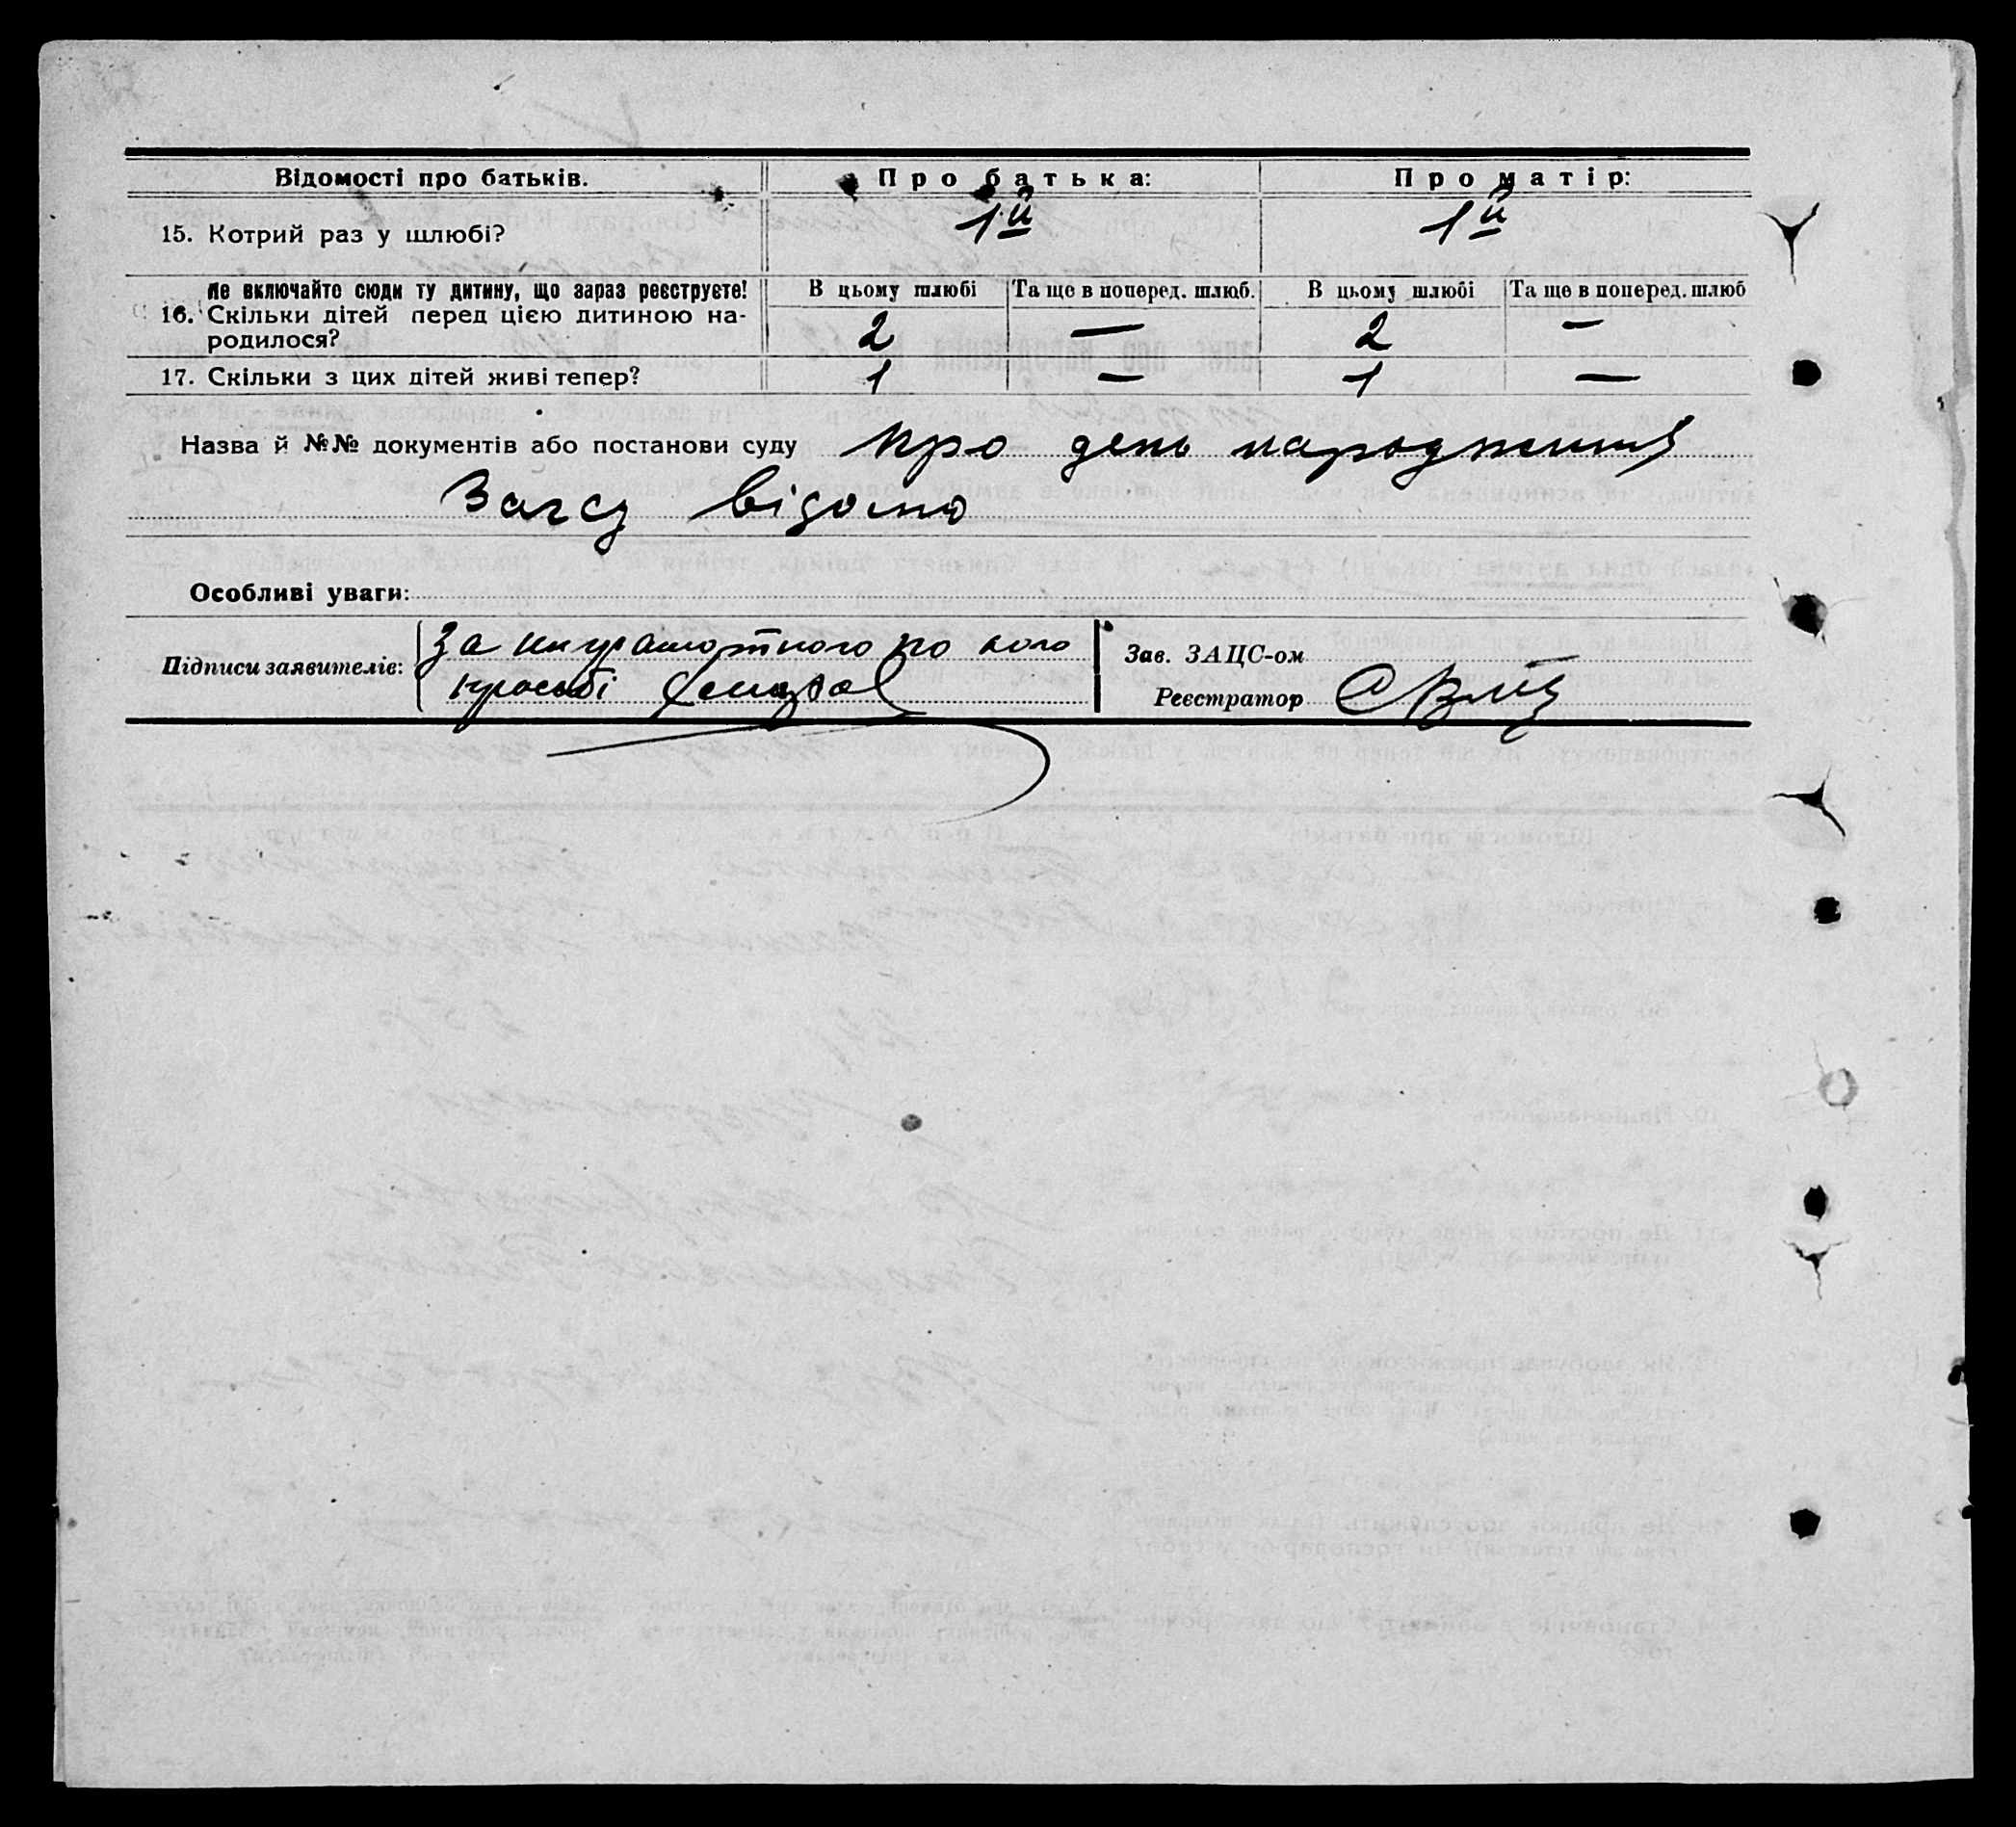 Відомості про батьків. Про батька: Про матір:
15. Котрий раз у шлюбі? 1й 1й
Не включайте сюди ту дитину, що зараз реєструєте! В цьому шлюбі Та ще в поперед. шлюб. В цьому шлюбі Та ще в поперед. шлюб
16. Скільки дітей перед цією дитиною на-
родилося? 2 — 2 —
17. Скільки з цих дітей живі тепер? 1 — 1 —
Назва й №№ документів або постанови суду про день народження
Загсу відомо
Особливі уваги:
Підписи заявителів: За неграмотного по його
просьбі
Зав. ЗАЦС-ом
Реєстратор